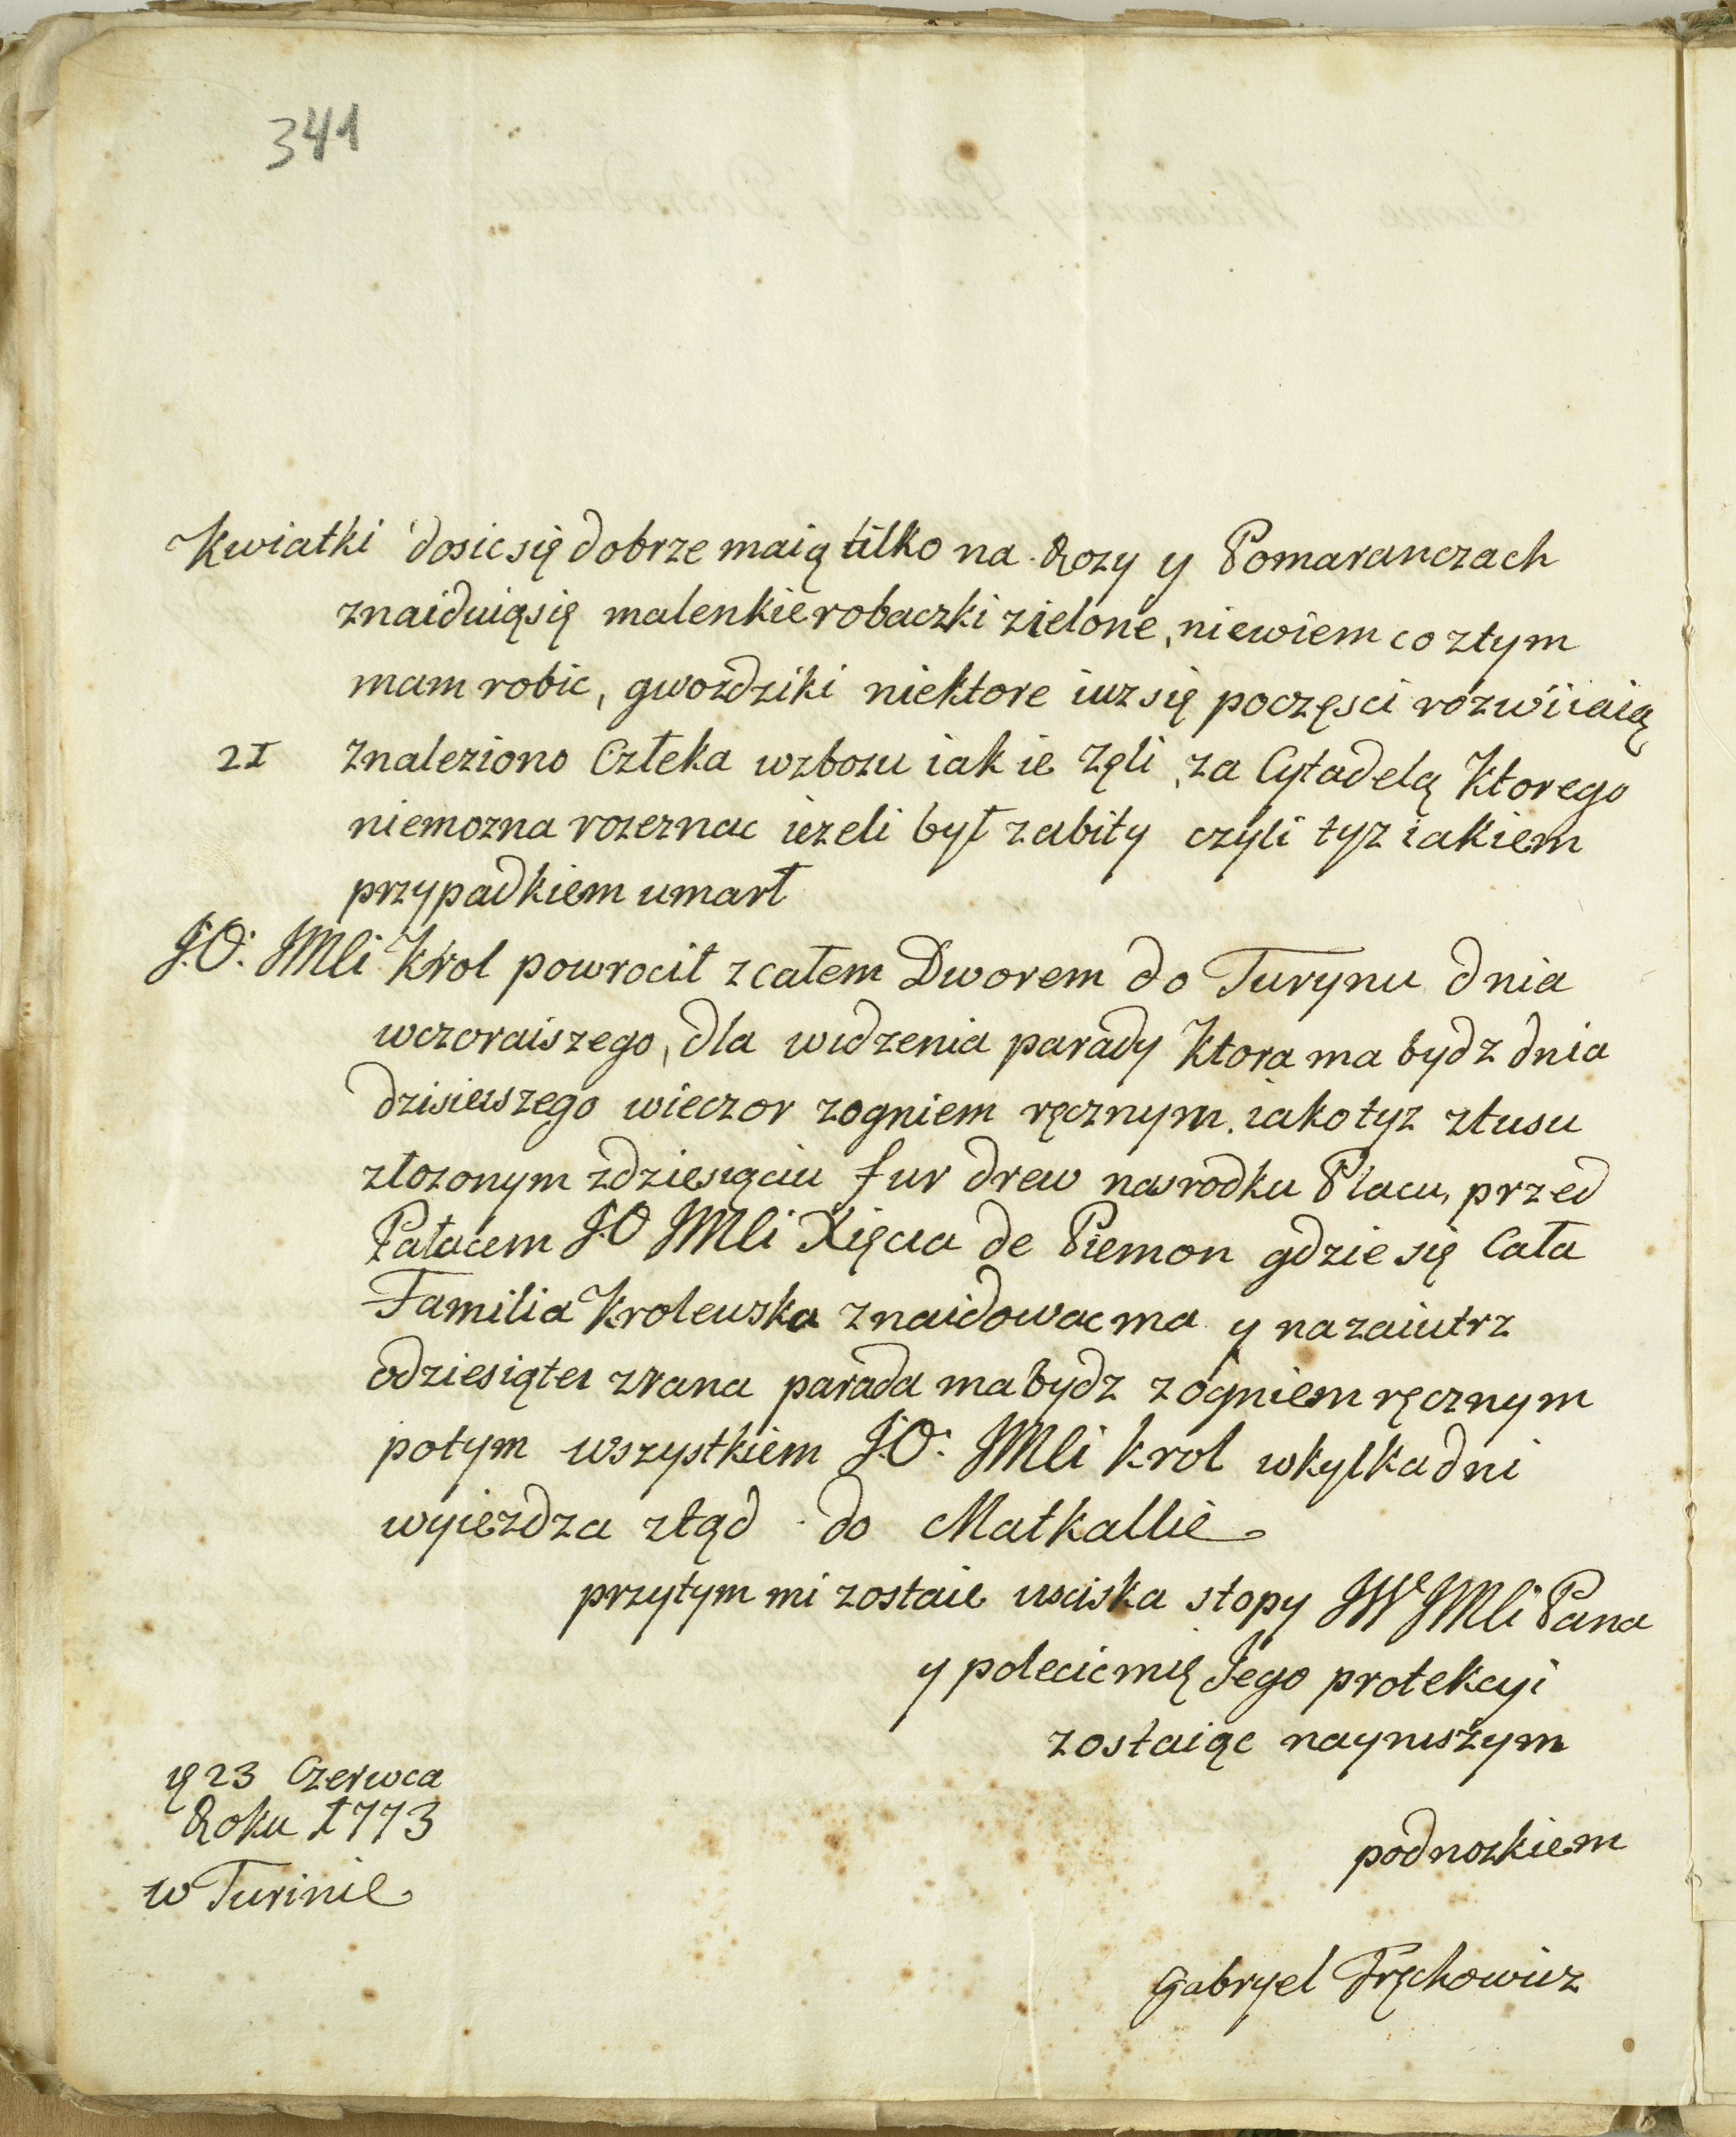 341
Kwiatki dosic się dobrze maią tilko na Rozy y Pomaranczach
znaiduią się malenkie robaczki zielone, niewiem co ztym
mam robic, gwozdziki niektore iuz się poczęsci rozwiiaią
21 Znaleziono Człeka wzbozu iak ie Zęli, za Cytadelą Ktorego
niemozna rozeznac iezeli był zabity czyli tyz iakiem
przypadkiem umarł
J.O: JMli Krol powrocił zcałem Dworem do Turynu dnia
wczoraiszego, dla widzenia parady Ktora ma bydz dnia
dzisieiszego wieczor zogniem ręcznym, iako tyz ztusu
złozonym zdziesiąciu fur drew nasrodku Placu, przed
Pałacem J.O JMli Xięcia de Piemon gdzie się Cała
Familia Krolewska znaidowac ma y nazaiutrz
odziesiątei zrana parada ma bydz zogniem ręcznym
potym wszystkiem J.O: JMli krol wkylka dni
wyiezdza ztąd do Matkallie
przytym mi zostaie usciska stopy JW JMli Pana
y polecic mię Jego protekcyi
zostaiąc naynizszym
podnozkiem
Gabryel Fręchowicz
23 Czerwca
Roku 1773
w Turinie